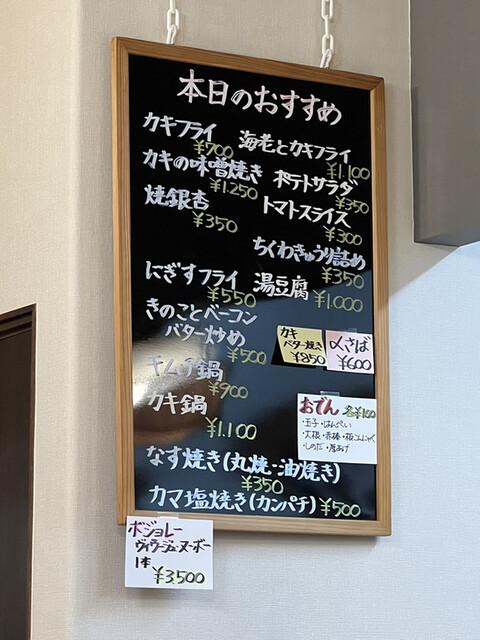 本日のおすすめ
カキフライ
¥700
海老とカキフライ
¥1.100
カキの味噌焼き
¥1.250
ポテトサラダ
¥350
焼銀杏
¥350
トマトスライス
¥300
ちくわきゅうり詰め
¥350
にぎすフライ
¥550
湯豆腐
¥1.000
きのことベーコン
バター炒め
¥500
カキ
バター焼き
¥850
〆さば
¥600
キムチ鍋
¥900
カキ鍋
¥1.100
おでん 各¥100
・玉子・はんぺい
・大根・赤棒・板こんにゃく
・しのだ・厚あげ
なす焼き(丸焼-油焼き)
¥350
カマ塩焼き(カンパチ) ¥500
ボジョレー
ヴィラージュ・ヌーボー
1本
¥3,500